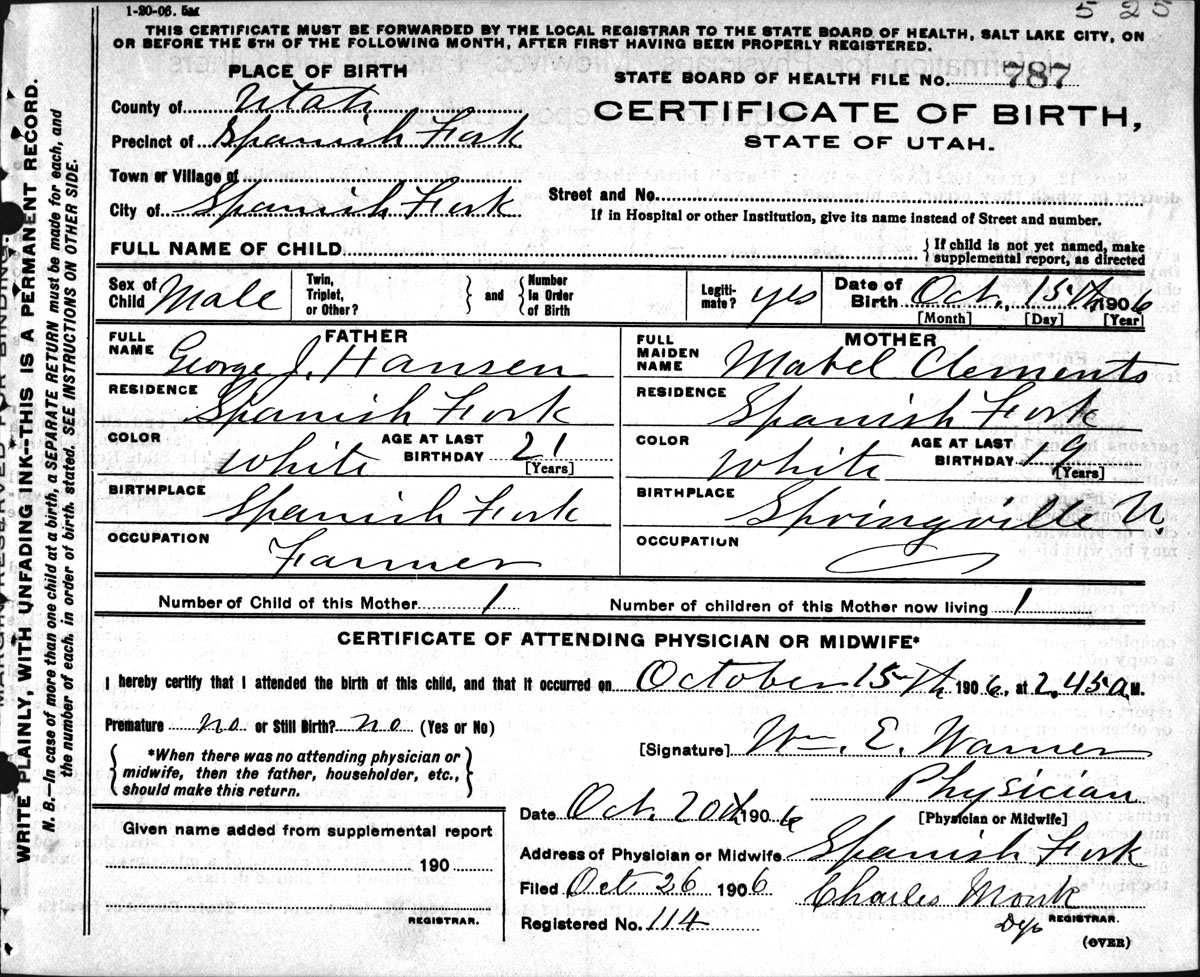 1-20-06. 5M
525
THIS CERTIFICATE MUST BE FORWARDED BY THE LOCAL REGISTRAR TO THE STATE BOARD OF HEALTH, SALT LAKE CITY, ON
OR BEFORE THE 5TH OF THE FOLLOWING MONTH, AFTER FIRST HAVING BEEN PROPERLY REGISTERED.
PLACE OF BIRTH
STATE BOARD OF HEALTH FILE No. 787
County of Utah
CERTIFICATE OF BIRTH,
Precinct of Spanish Fork
STATE OF UTAH.
Town or Village of
Street and No.
City of Spanish Fork
If in Hospital or other Institution, give its name instead of Street and number.
FULL NAME OF CHILD
{ If child is not yet named, make
supplemental report, as directed
Sex of Child Male
Twin, Triplet, or Other? } and { Number in Order of Birth
Legitimate? yes
Date of Birth Oct. 15th 1906
[Month] [Day] [Year]
FATHER
FULL NAME George J. Hansen
RESIDENCE Spanish Fork
COLOR White AGE AT LAST BIRTHDAY 21 [Years]
BIRTHPLACE Spanish Fork
OCCUPATION Farmer
MOTHER
FULL MAIDEN NAME Mabel Clements
RESIDENCE Spanish Fork
COLOR White AGE AT LAST BIRTHDAY 19 [Years]
BIRTHPLACE Springville U.
OCCUPATION
Number of Child of this Mother 1 Number of children of this Mother now living 1
CERTIFICATE OF ATTENDING PHYSICIAN OR MIDWIFE*
I hereby certify that I attended the birth of this child, and that it occurred on October 15th 1906, at 2.45 a M.
Premature no or Still Birth? no (Yes or No)
[Signature] Wm. E. Warner
{ *When there was no attending physician or
midwife, then the father, householder, etc.,
should make this return. }
Physician
[Physician or Midwife]
Date Oct. 20th 1906
Given name added from supplemental report
190
REGISTRAR.
Address of Physician or Midwife Spanish Fork
Filed Oct 26 1906 Charles Monk
Registered No. 114 Dep REGISTRAR.
(OVER)
WRITE PLAINLY, WITH UNFADING INK--THIS IS A PERMANENT RECORD.
N. B.—In case of more than one child at a birth, a SEPARATE RETURN must be made for each, and
the number of each, in order of birth, stated. SEE INSTRUCTIONS ON OTHER SIDE.